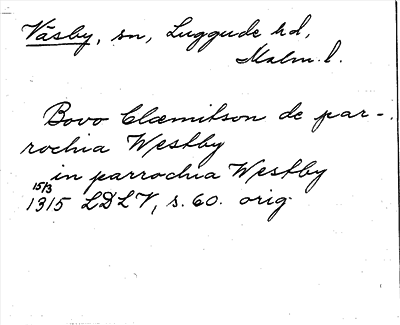 Väsby, sn, Luggude hd,
Malm. l.
Bovo Clæmitson de par-
rochia Westby
in parrochia Westby
15/3
1315 LDLV, s. 60. orig.